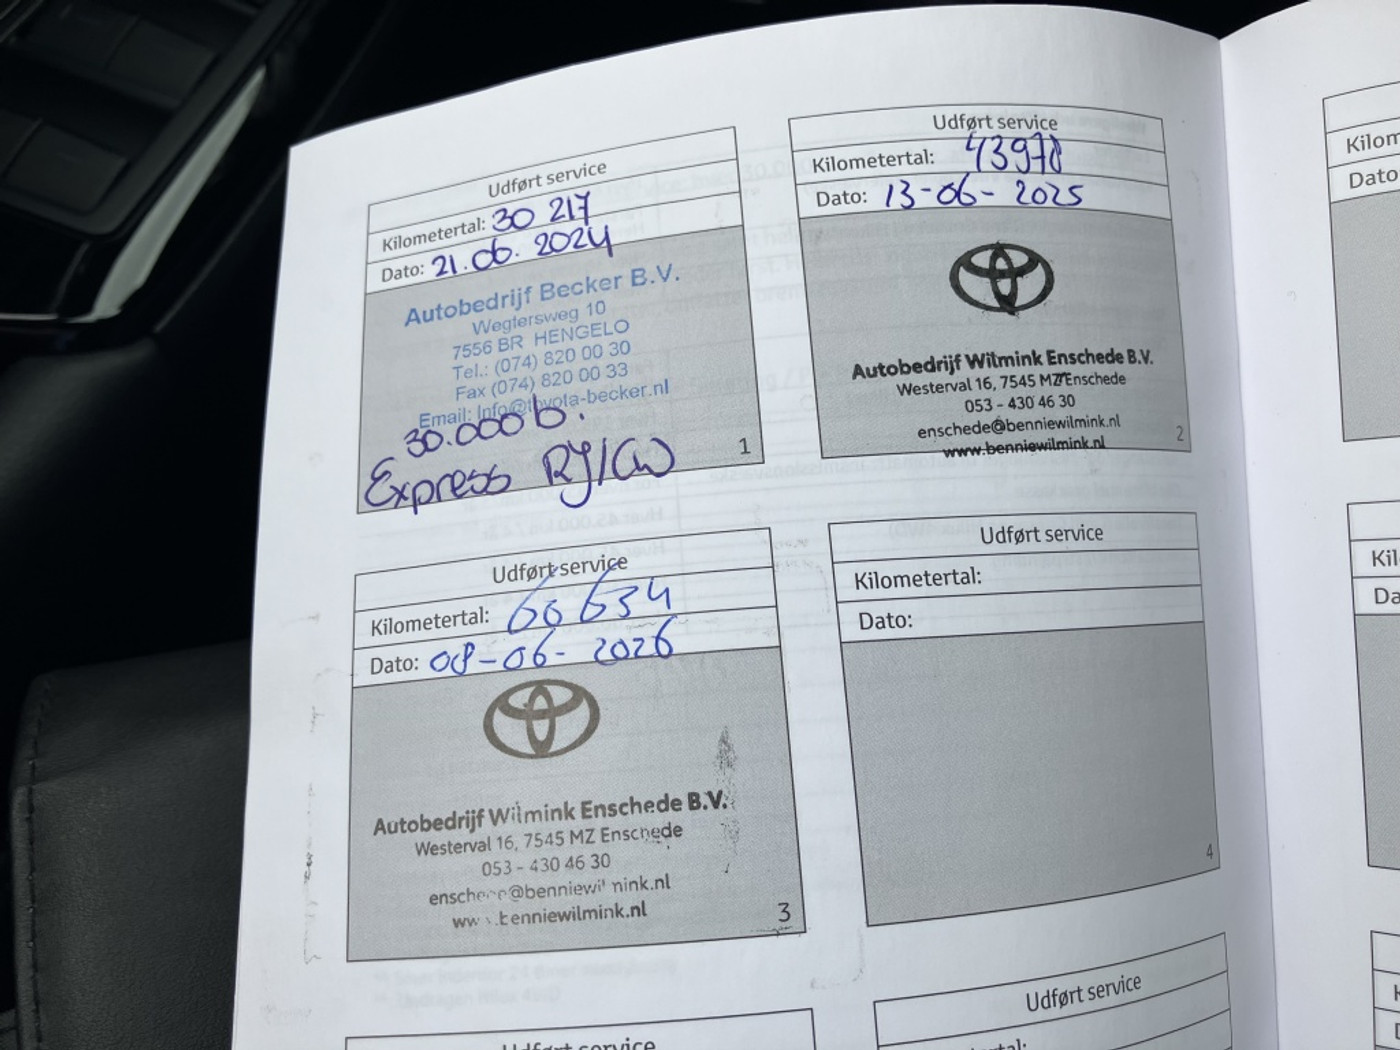 Udført service
Kilometertal: 30 217
Dato: 21.06.2024
Autobedrijf Becker B.V.
Wegtersweg 10
7556 BR HENGELO
Tel.: (074) 820 00 30
Fax (074) 820 00 33
Email: Info@toyota-becker.nl
30.000 b.
Express RJ/CW
1
Udført service
Kilometertal: 43978
Dato: 13-06-2025
Autobedrijf Wilmink Enschede B.V.
Westerval 16, 7545 MZ Enschede
053 - 430 46 30
enschede@benniewilmink.nl
www.benniewilmink.nl
2
Udført service
Kilometertal: 60 634
Dato: 08-06-2026
Autobedrijf Wilmink Enschede B.V.
Westerval 16, 7545 MZ Enschede
053 - 430 46 30
enschede@benniewilmink.nl
www.benniewilmink.nl
3
Udført service
Kilometertal:
Dato:
4
Udført service
Udført service
Kilom
Dato
Kil
Da